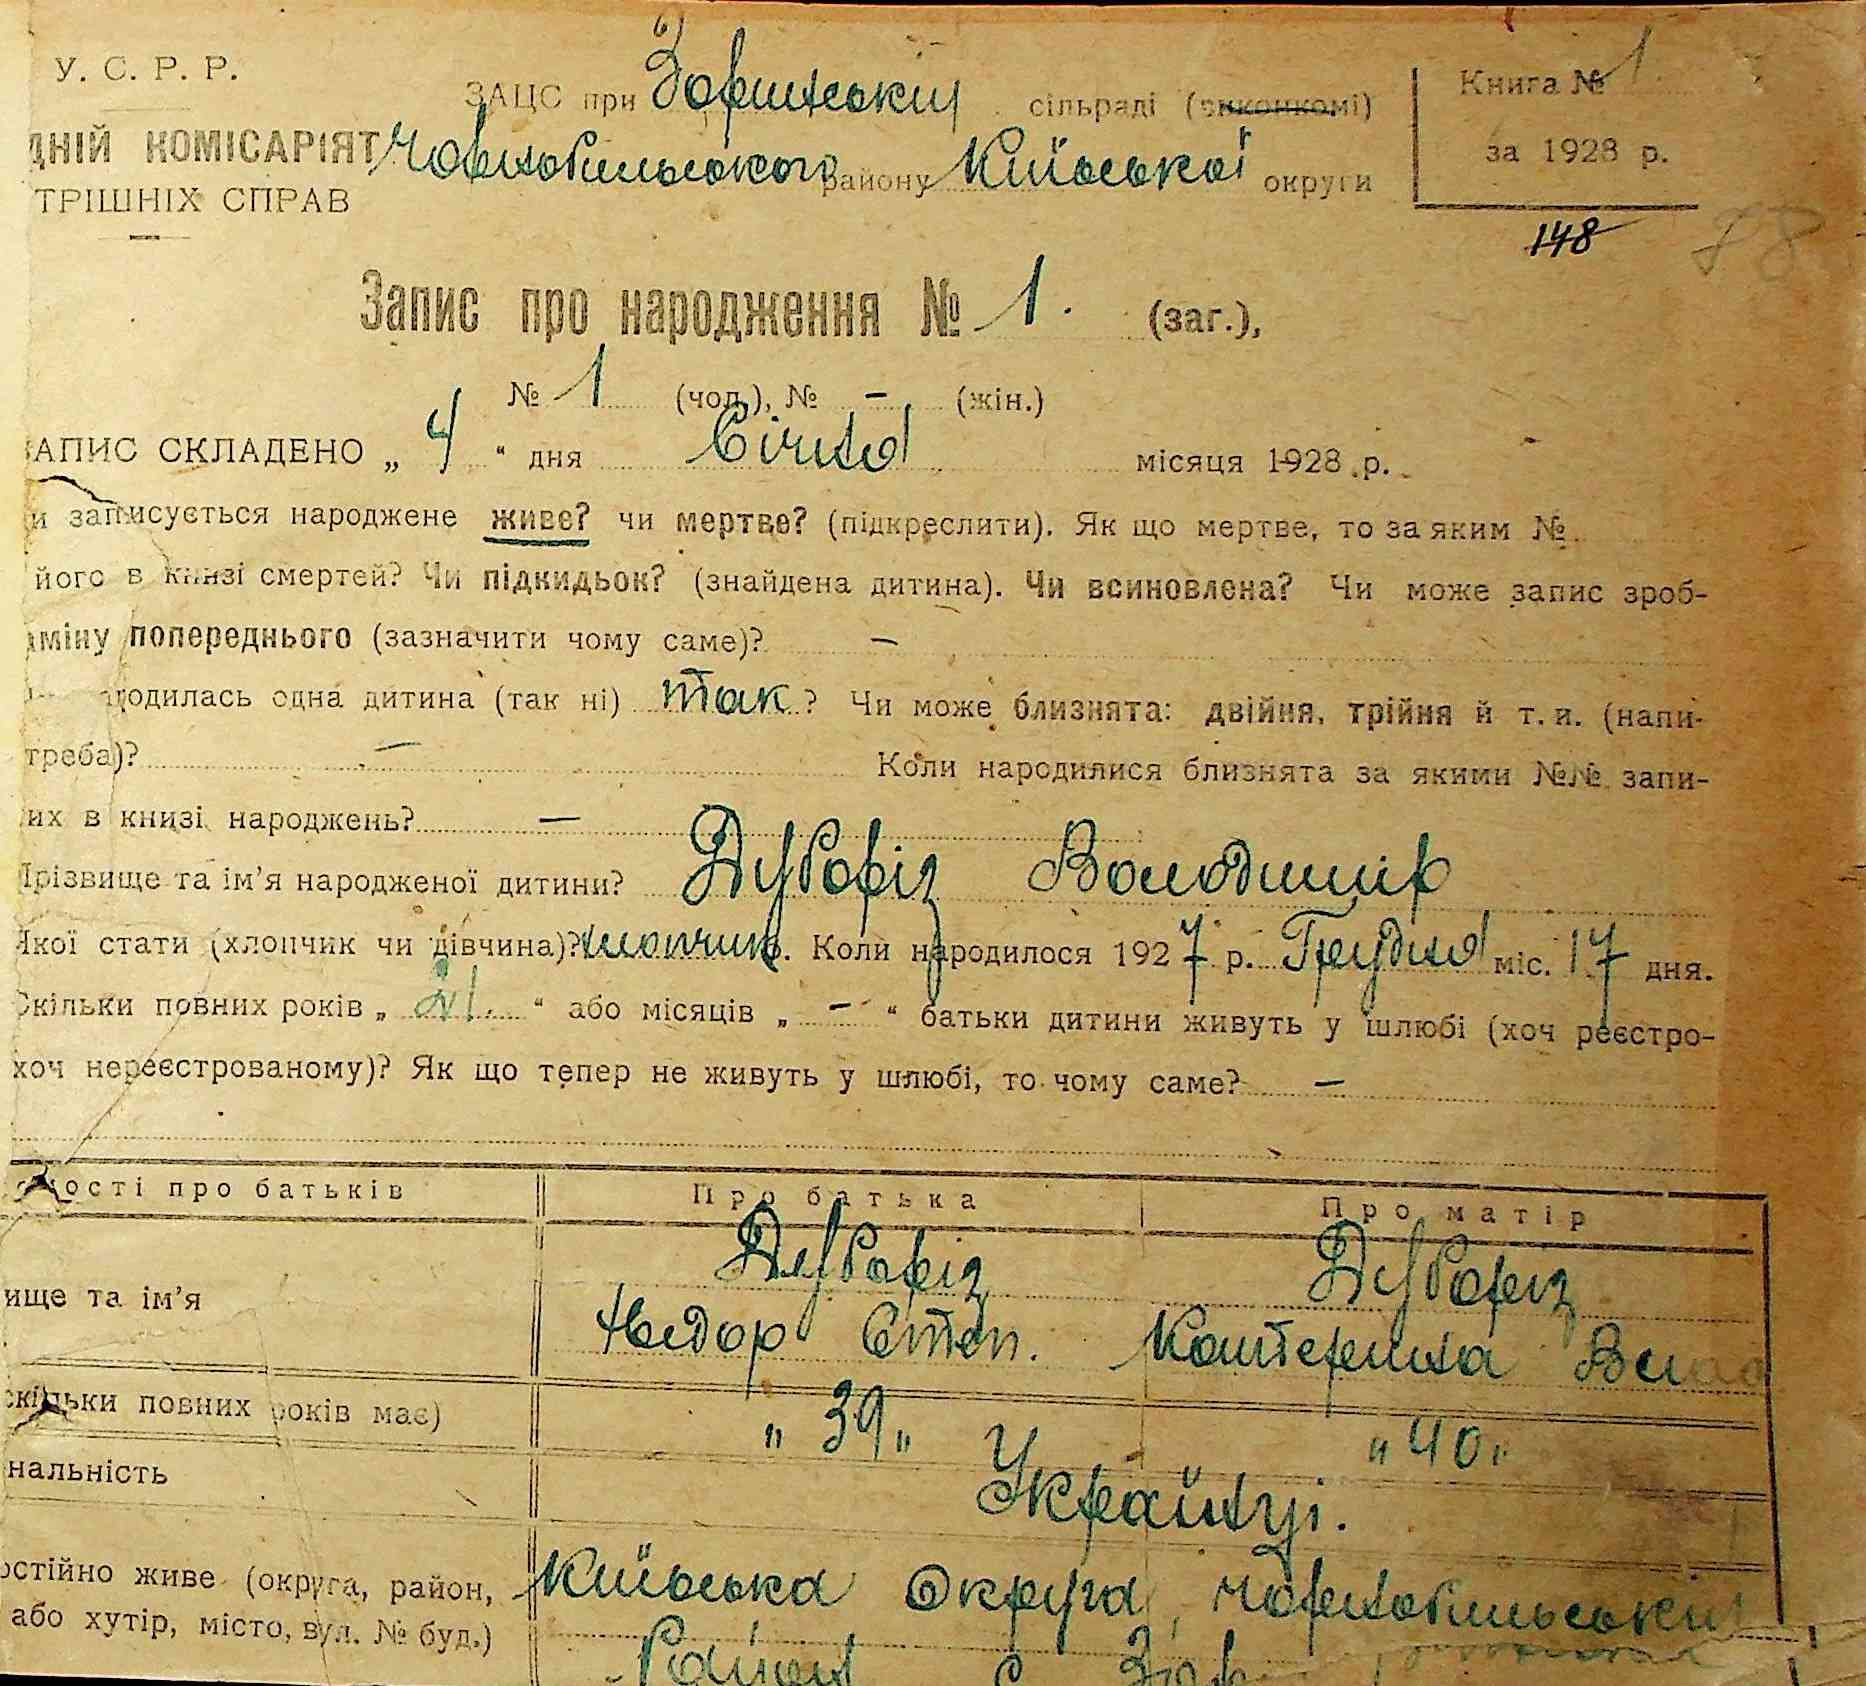 У. С. Р. Р.
ЗАЦС при Зоринській сільраді (виконкомі)
Книга № 1
ДНІЙ КОМІСАРІЯТ
Чорнобильського району Київської округи
за 1928 р.
ТРІШНІХ СПРАВ
148
88
Запис про народження № 1. (заг.),
№ 1 (чол.), № — (жін.)
АПИС СКЛАДЕНО „ 4 “ дня Січня місяця 1928 р.
и записується народжене живе? чи мертве? (підкреслити). Як що мертве, то за яким №
його в книзі смертей? Чи підкидьок? (знайдена дитина). Чи всиновлена? Чи може запис зроб-
аміну попереднього (зазначити чому саме)? —
родилась одна дитина (так ні) так? Чи може близнята: двійня, трійня й т. и. (напи-
треба)? — Коли народилися близнята за якими №№ запи-
их в книзі народжень? —
Прізвище та ім'я народженої дитини? Дуборіз Володимир
Якої стати (хлопчик чи дівчина)? хлопчик. Коли народилося 1927 р. Грудня міс. 17 дня.
Скільки повних років „ 21. “ або місяців „ — “ батьки дитини живуть у шлюбі (хоч реєстро-
хоч нереєстрованому)? Як що тепер не живуть у шлюбі, то чому саме? —
мості про батьків Про батька Про матір
Дуборіз Дуборіз
ище та ім'я
Федор Степ. Катерина Влас
скільки повних років має) „ 39 „ „ 40 „
нальність Українці.
остійно живе (округа, район, Київська округа, Чорнобильський
або хутір, місто, вул. № буд.)
Район с Зор